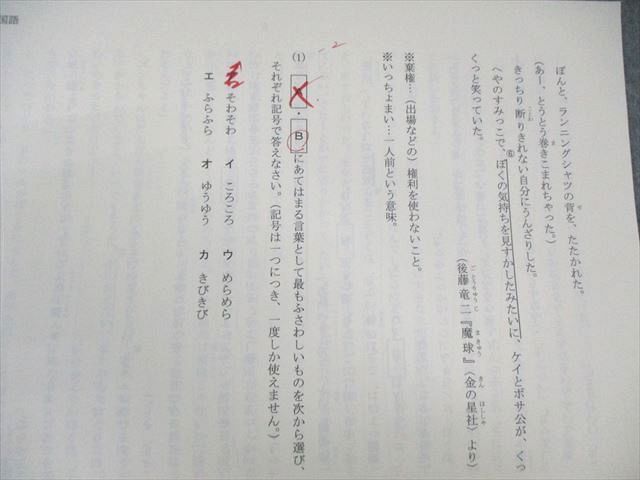 国語
ぽんと、ランニングシャツの背を、たたかれた。
(あー、とうとう巻きこまれちゃった。)
きっちり断りきれない自分にうんざりした。
へやのすみっこで、⑥ぼくの気持ちを見すかしたみたいに、ケイとボサ公が、くっ
くっと笑っていた。
(後藤竜二『魔球』(金の星社)より)
※棄権…(出場などの)権利を使わないこと。
※いっちょまい…一人前という意味。
-2
(1) ・Bにあてはまる言葉として最もふさわしいものを次から選び、
それぞれ記号で答えなさい。(記号は一つにつき、一度しか使えません。)
そわそわ イ ころころ ウ めらめら
エ ふらふら オ ゆうゆう カ きびきび